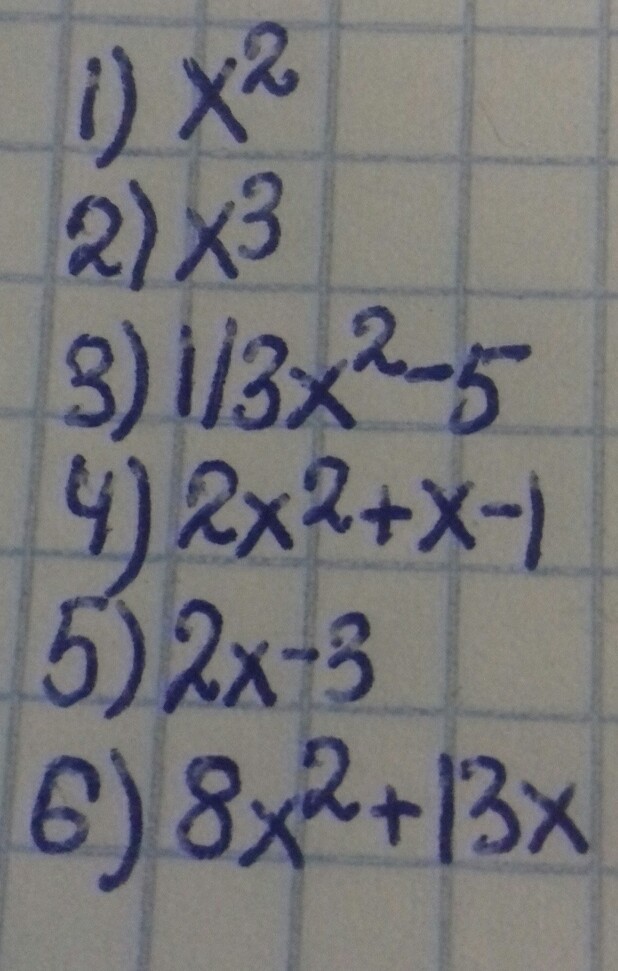 1) x²
2) x³
3) 1/3x²-5
4) 2x²+x-1
5) 2x-3
6) 8x²+13x